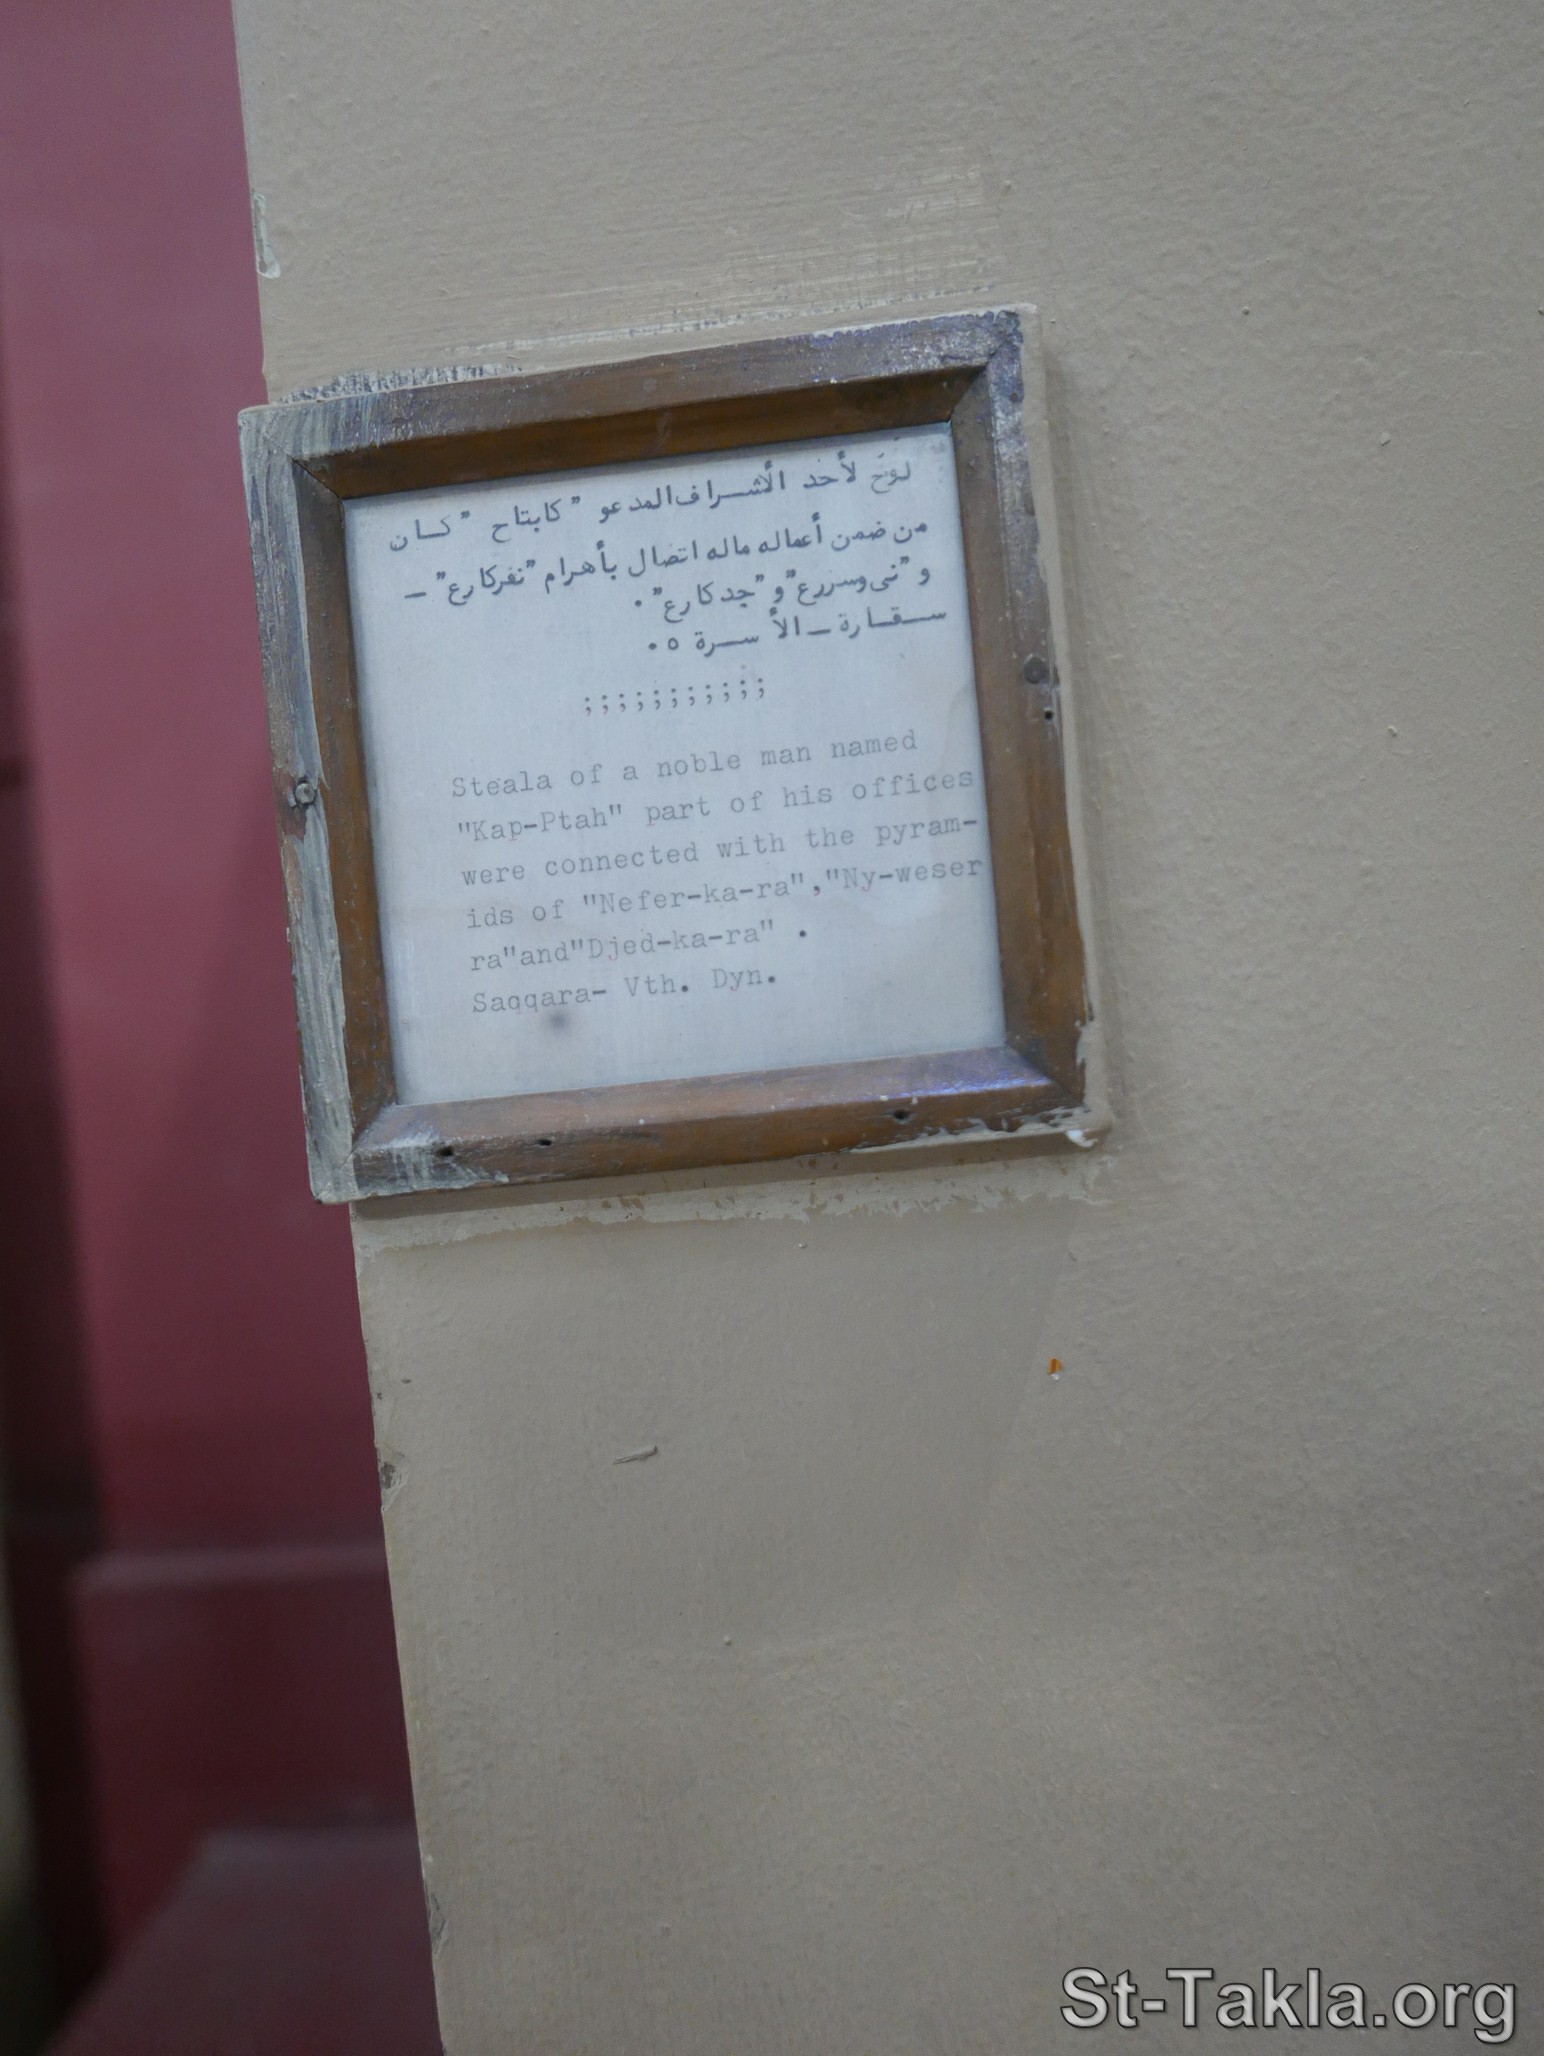 لوح لأحد الأشراف المدعو "كابتاح" كان
من ضمن أعماله ماله اتصال بأهرام "نفركارع" –
و "نى وسررع" و "جد كارع" .
سقارة – الأسرة ٥ .
;;;;;;;;;;;
Steala of a noble man named
"Kap-Ptah" part of his offices
were connected with the pyram-
ids of "Nefer-ka-ra","Ny-weser
ra"and"Djed-ka-ra" .
Saqqara- Vth. Dyn.
St-Takla.org